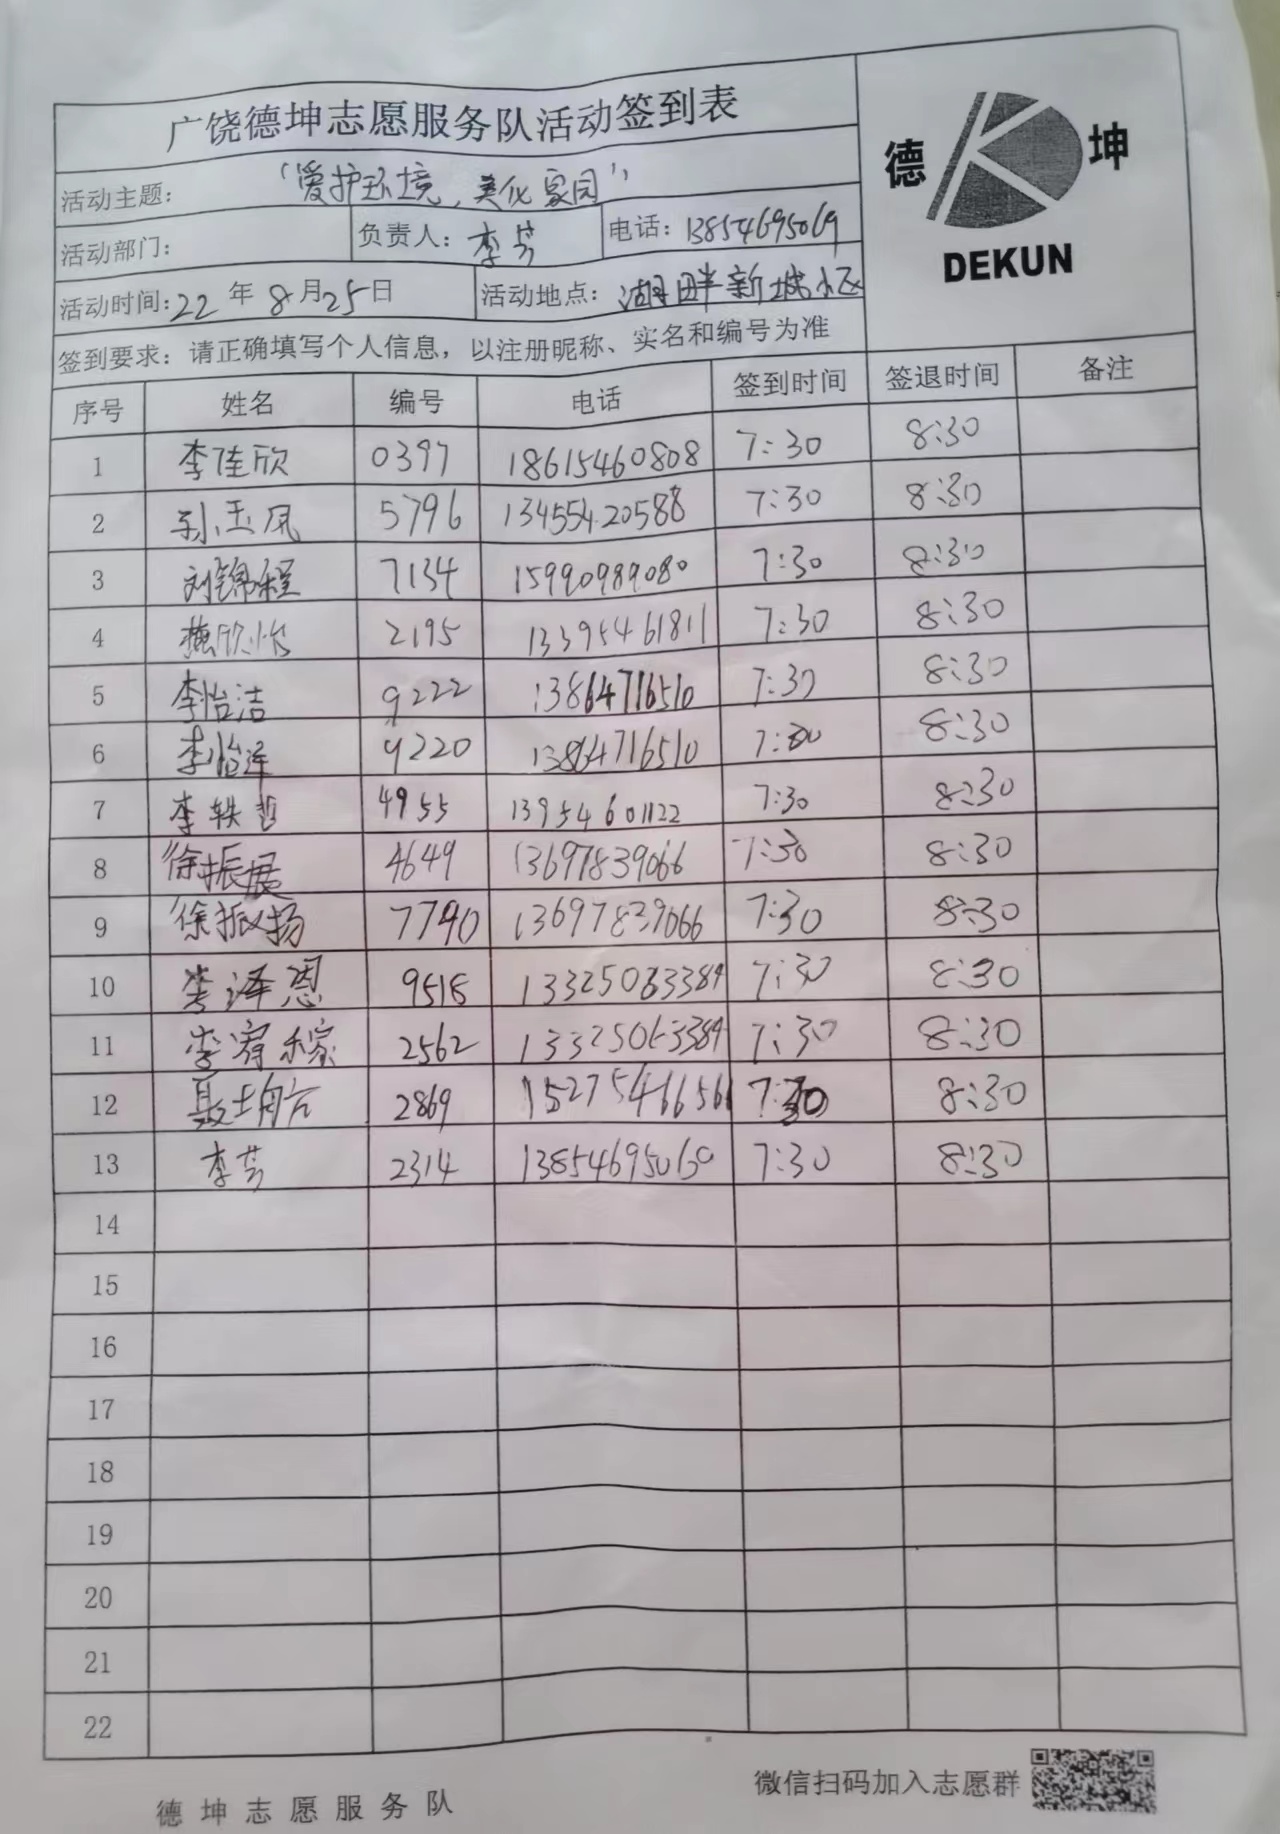 广饶德坤志愿服务队活动签到表
德 坤
DEKUN
活动主题: "爱护环境,美化家园"
活动部门: 负责人: 李芳 电话: 13854695069
活动时间: 22 年 8 月 25 日 活动地点: 湖畔新城小区
签到要求: 请正确填写个人信息, 以注册昵称、实名和编号为准
序号 姓名 编号 电话 签到时间 签退时间 备注
1 李佳欣 0397 18615460808 7:30 8:30
2 孙玉凤 5796 13455420588 7:30 8:30
3 刘锦程 7134 15990989080 7:30 8:30
4 欣怡 2195 13395461811 7:30 8:30
5 李怡洁 9222 13864716510 7:30 8:30
6 李怡泽 9220 13864716510 7:30 8:30
7 李轶哲 4955 13954601122 7:30 8:30
8 徐振展 4649 13697839066 7:30 8:30
9 徐振扬 7790 13697839066 7:30 8:30
10 李泽恩 9518 7:30 8:30
11 李 2562 7:30 8:30
12 2869 15275466566 7:30 8:30
13 李芳 2314 7:30 8:30
14
15
16
17
18
19
20
21
22
微信扫码加入志愿群
德坤志愿服务队